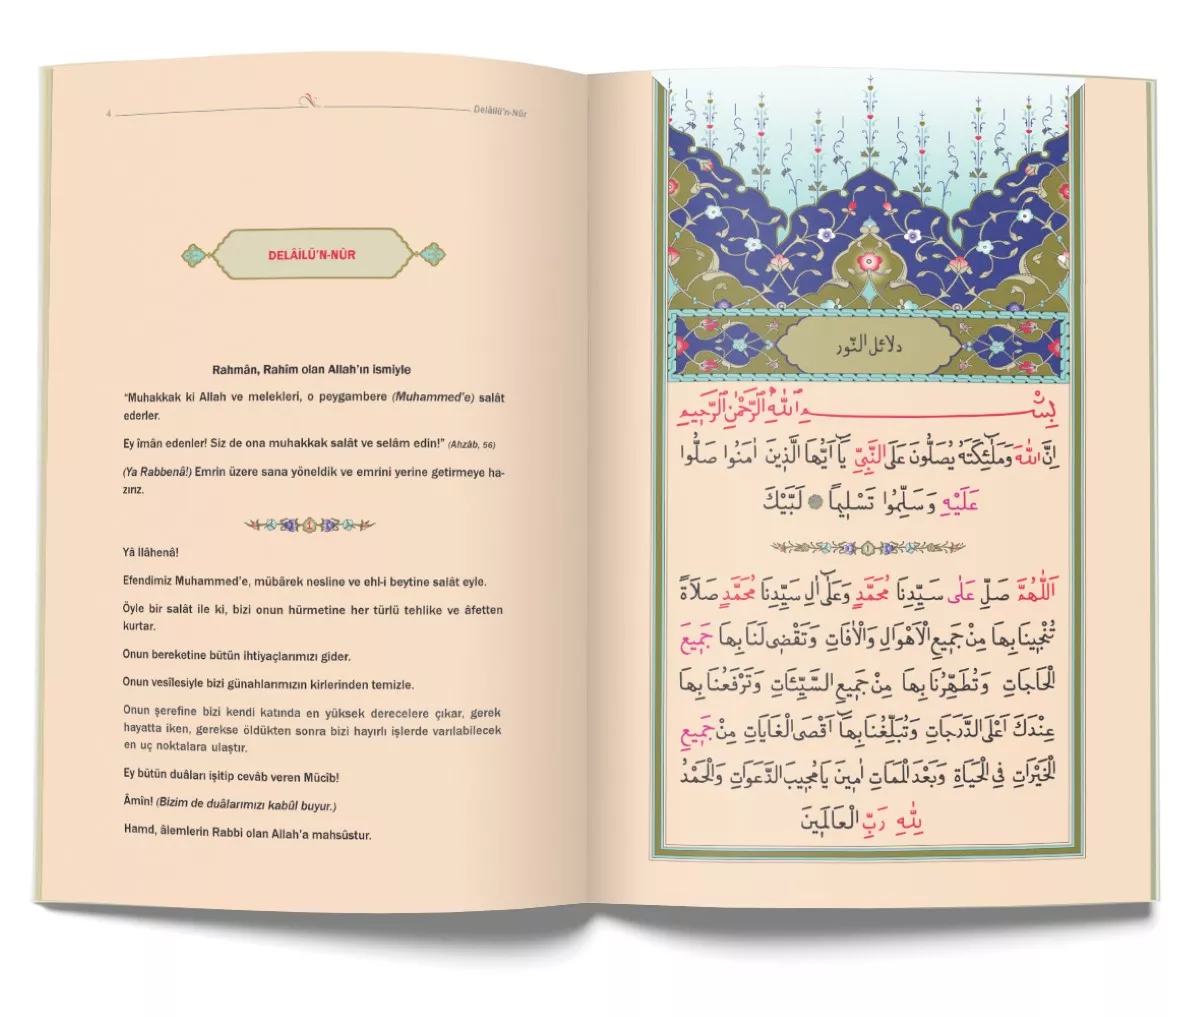 4
Delâilü'n-Nûr
DELÂİLÜ'N-NÛR
Rahmân, Rahîm olan Allah'ın ismiyle
“Muhakkak ki Allah ve melekleri, o peygambere (Muhammed'e) salât
ederler.
Ey îmân edenler! Siz de ona muhakkak salât ve selâm edin!” (Ahzâb, 56)
(Ya Rabbenâ!) Emrin üzere sana yöneldik ve emrini yerine getirmeye ha-
zırız.
Yâ ilâhenâ!
Efendimiz Muhammed'e, mübârek nesline ve ehl-i beytine salât eyle.
Öyle bir salât ile ki, bizi onun hürmetine her türlü tehlike ve âfetten
kurtar.
Onun bereketine bütün ihtiyaçlarımızı gider.
Onun vesîlesiyle bizi günahlarımızın kirlerinden temizle.
Onun şerefine bizi kendi katında en yüksek derecelere çıkar, gerek
hayatta iken, gerekse öldükten sonra bizi hayırlı işlerde varılabilecek
en uç noktalara ulaştır.
Ey bütün duâları işitip cevâb veren Mücîb!
Âmîn! (Bizim de duâlarımızı kabûl buyur.)
Hamd, âlemlerin Rabbi olan Allah'a mahsûstur.
دلائل النّور
بِسْــــمِ اللّٰهِ الرَّحْمٰنِ الرَّحِيمِ
اِنَّ اللّٰهَ وَمَلٰٓئِكَتَهُ يُصَلُّونَ عَلَى النَّبِيِّ يَٓا اَيُّهَا الَّذِينَ اٰمَنُوا صَلُّوا
عَلَيْهِ وَسَلِّمُوا تَسْلِيمًا ۞ لَبَّيْكَ
اَللّٰهُمَّ صَلِّ عَلٰى سَيِّدِنَا مُحَمَّدٍ وَعَلٰٓى اٰلِ سَيِّدِنَا مُحَمَّدٍ صَلَاةً
تُنْجِينَا بِهَا مِنْ جَمِيعِ الْاَهْوَالِ وَالْاٰفَاتِ وَتَقْضِى لَنَا بِهَا جَمِيعَ
الْحَاجَاتِ وَتُطَهِّرُنَا بِهَا مِنْ جَمِيعِ السَّيِّئَاتِ وَتَرْفَعُنَا بِهَا
عِنْدَكَ اَعْلَى الدَّرَجَاتِ وَتُبَلِّغُنَا بِهَٓا اَقْصَى الْغَايَاتِ مِنْ جَمِيعِ
الْخَيْرَاتِ فِى الْحَيَاةِ وَبَعْدَ الْمَمَاتِ اٰمِينَ يَا مُجِيبَ الدَّعَوَاتِ وَالْحَمْدُ
لِلّٰهِ رَبِّ الْعَالَمِينَ